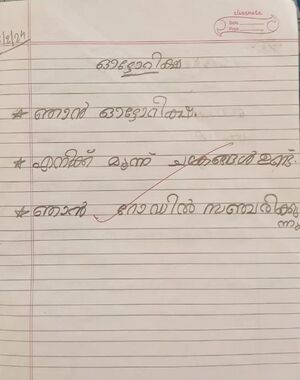 classmate
Date
Page
/2/24
ഓട്ടോറിക്ഷ
* ഞാൻ ഓട്ടോറിക്ഷ.
* എനിക്ക് മൂന്ന് ചക്രങ്ങൾ ഉണ്ട്.
* ഞാൻ റോഡിൽ സഞ്ചരിക്കു
ന്നു